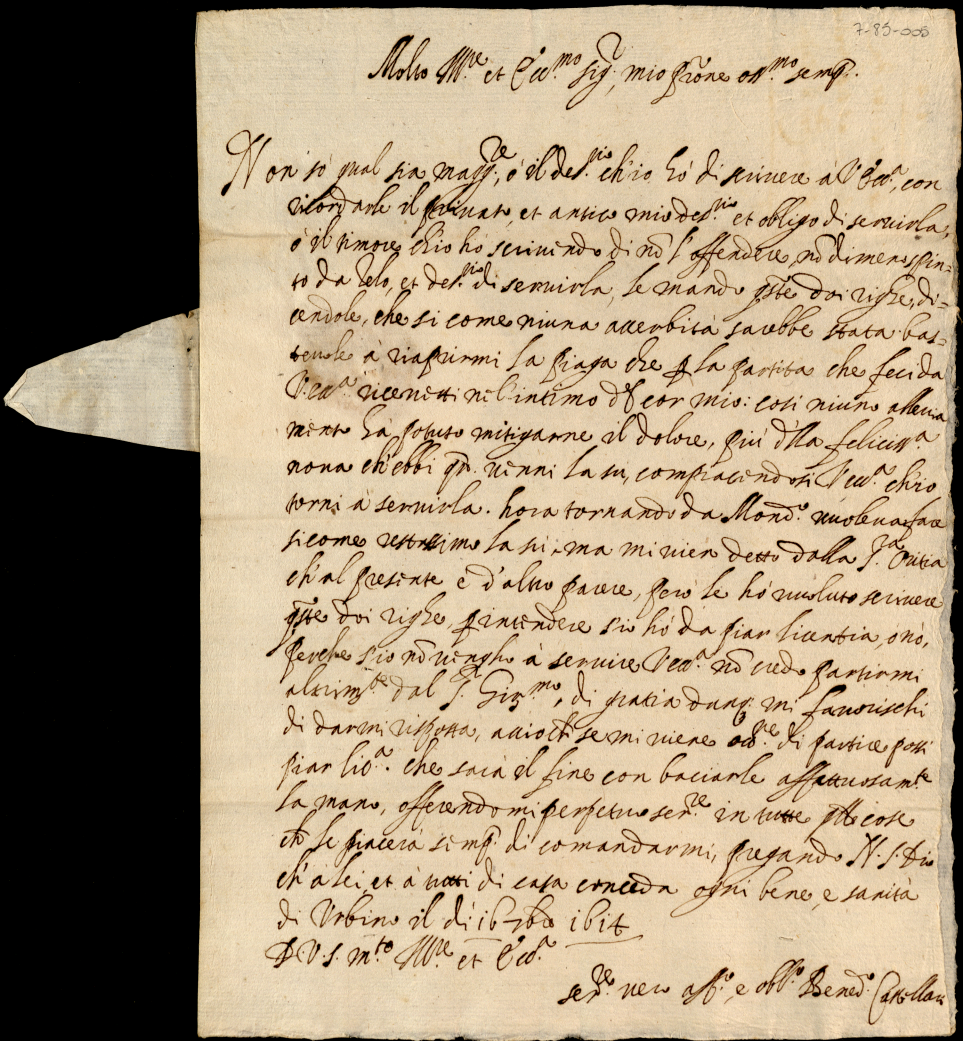 7-85-005
Molto Ill.re et Ecc.mo Sig.r, mio p̄rone oss.mo semp.
Non sò qual sia magg.re, ò il des.rio ch'io hò di scriuere à V.Ecc.a, con
ricordarle il priuato, et antico mio des.rio et obligo di seruirla,
ò il timore ch'io hò scriuendo di nō l'offendere, nō dimeno spin-
to da zelo, et des.rio di seruirla, le mando q̄ste doi righe, di-
cendole, che si come niuna acerbità sarebbe stata bas-
teuole à riaprirmi la piaga che p la partita che feci da
V.ecc.a riceuetti nel intimo del cor mio: cosi niuno alleuia
mento ha potuto mitigarne il dolore, più dlla feliciss.a
noua ch'ebbi qn. uenni la sù, compiacendosi V.ecc.a ch'io
torni à seruirla. hora tornando da Mond.o uoleua fare
sicome restassimo la sù, ma mi uien detto dalla S.ra
ch'al presente è d'altro parere, però le hò uoluto scriuere
q̄ste doi righe, p intendere s'io hò da piar licentia, ò nò,
perche s'io nō uengho à seruire V.ecc.a nō credo partirmi
altrim.te dal S.r Gir.mo, di gratia dunq. mi fauorischi
di darmi risposta, acciochè se mi uiene occ.ne di partire possi
piar lic.a. che sarà il fine con baciarle affettuosam.te
la mano, offerendomi perpetuo ser.re in tutte q̄lle cose
ch̄ le piacerà semp. di comandarmi, pregando N.S. Dio
ch'a lei, et à tutti di casa conceda ogni bene, e sanità
di Vrbino il dì 16 7bre 1614
D.V.S. m.to Ill.re et Ecc.a
ser.re uero aff.o, e obl.o Bened.o Castellani